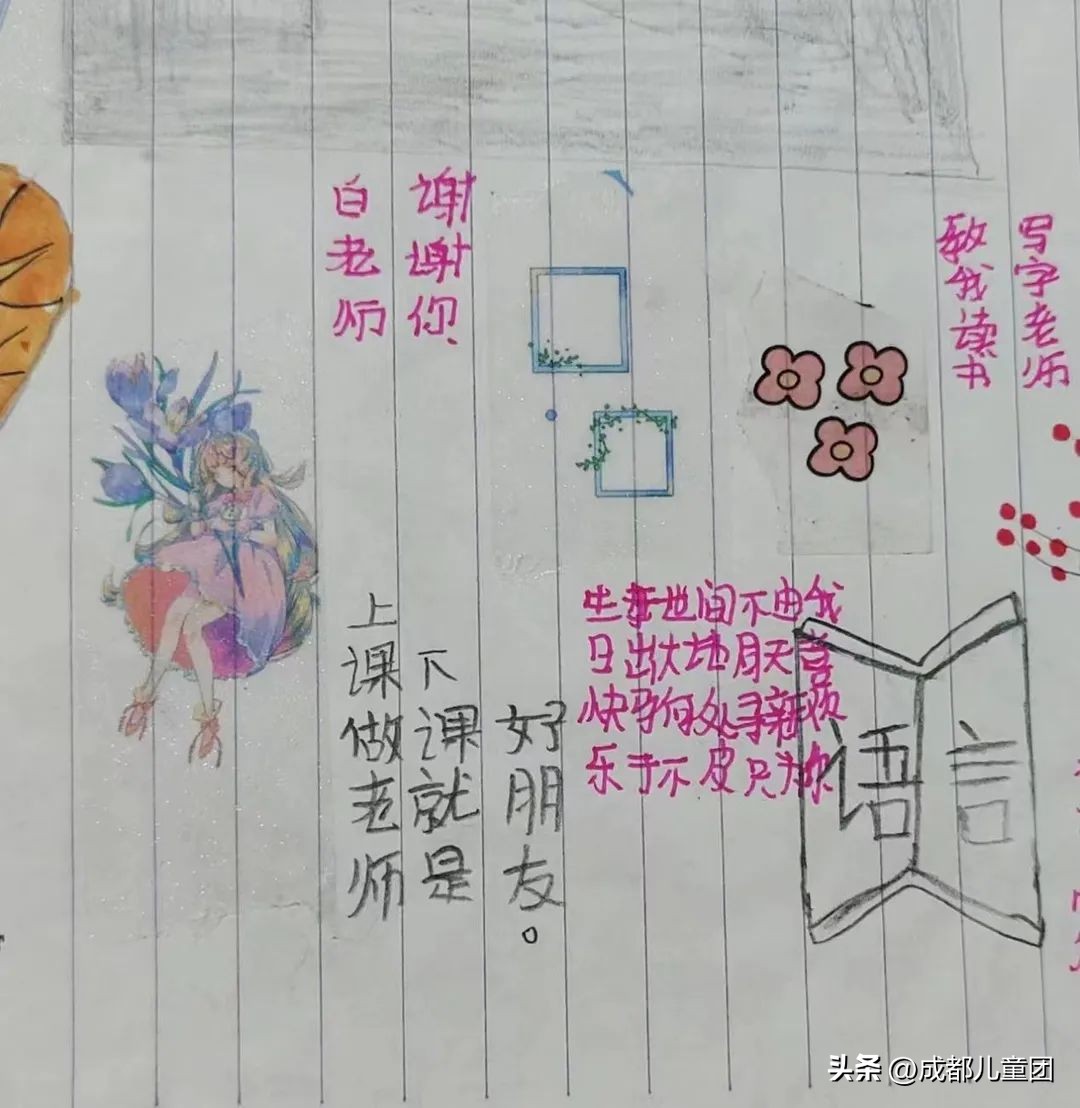 白老师
谢谢你、
教我读书
写字老师
上课做老师
下课就是
好朋友。
生世间不由我
日出大地月天喜
快何处寻新欢
乐于不皮只为你
语言
头条 @成都儿童团